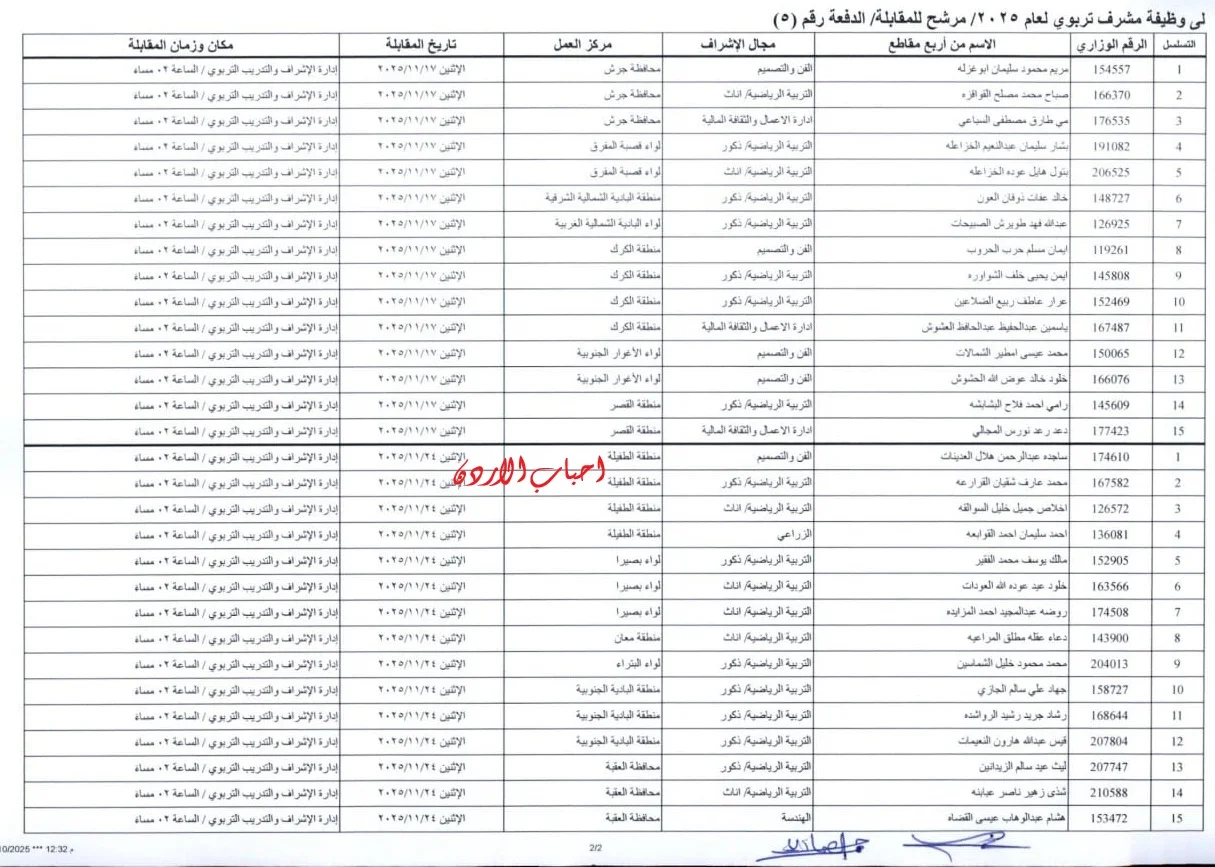 لى وظيفة مشرف تربوي لعام ٢٠٢٥/ مرشح للمقابلة/ الدفعة رقم (٥)
التسلسل الرقم الوزاري الاسم من أربع مقاطع مجال الإشراف مركز العمل تاريخ المقابلة مكان وزمان المقابلة
1 154557 مريم محمود سليمان ابوغزله الفن والتصميم محافظة جرش الإثنين ٢٠٢٥/١١/١٧ إدارة الإشراف والتدريب التربوي / الساعة ٠٢ مساءً
2 166370 صباح محمد مصلح القواقزه التربية الرياضية/ اناث محافظة جرش الإثنين ٢٠٢٥/١١/١٧ إدارة الإشراف والتدريب التربوي / الساعة ٠٢ مساءً
3 176535 مي طارق مصطفى السباعي ادارة الاعمال والثقافة المالية محافظة جرش الإثنين ٢٠٢٥/١١/١٧ إدارة الإشراف والتدريب التربوي / الساعة ٠٢ مساءً
4 191082 بشار سليمان عبدالنعيم الخزاعله التربية الرياضية/ ذكور لواء قصبة المفرق الإثنين ٢٠٢٥/١١/١٧ إدارة الإشراف والتدريب التربوي / الساعة ٠٢ مساءً
5 206525 بتول هايل عوده الخزاعله التربية الرياضية/ اناث لواء قصبة المفرق الإثنين ٢٠٢٥/١١/١٧ إدارة الإشراف والتدريب التربوي / الساعة ٠٢ مساءً
6 148727 خالد عفات ذوقان العون التربية الرياضية/ ذكور منطقة البادية الشمالية الشرقية الإثنين ٢٠٢٥/١١/١٧ إدارة الإشراف والتدريب التربوي / الساعة ٠٢ مساءً
7 126925 عبدالله فهد طويرش الصبيحات التربية الرياضية/ ذكور لواء البادية الشمالية الغربية الإثنين ٢٠٢٥/١١/١٧ إدارة الإشراف والتدريب التربوي / الساعة ٠٢ مساءً
8 119261 ايمان مسلم حرب الحروب الفن والتصميم منطقة الكرك الإثنين ٢٠٢٥/١١/١٧ إدارة الإشراف والتدريب التربوي / الساعة ٠٢ مساءً
9 145808 ايمن يحيى خلف الشواوره التربية الرياضية/ ذكور منطقة الكرك الإثنين ٢٠٢٥/١١/١٧ إدارة الإشراف والتدريب التربوي / الساعة ٠٢ مساءً
10 152469 عرار عاطف ربيع الضلاعين التربية الرياضية/ ذكور منطقة الكرك الإثنين ٢٠٢٥/١١/١٧ إدارة الإشراف والتدريب التربوي / الساعة ٠٢ مساءً
11 167487 ياسمين عبدالحفيظ عبدالحافظ العشوش ادارة الاعمال والثقافة المالية منطقة الكرك الإثنين ٢٠٢٥/١١/١٧ إدارة الإشراف والتدريب التربوي / الساعة ٠٢ مساءً
12 150065 محمد عيسى امطير الشمالات الفن والتصميم لواء الأغوار الجنوبية الإثنين ٢٠٢٥/١١/١٧ إدارة الإشراف والتدريب التربوي / الساعة ٠٢ مساءً
13 166076 خلود خالد عوض الله الحشوش الفن والتصميم لواء الأغوار الجنوبية الإثنين ٢٠٢٥/١١/١٧ إدارة الإشراف والتدريب التربوي / الساعة ٠٢ مساءً
14 145609 رامي احمد فلاح البشابشه التربية الرياضية/ ذكور منطقة القصر الإثنين ٢٠٢٥/١١/١٧ إدارة الإشراف والتدريب التربوي / الساعة ٠٢ مساءً
15 177423 دعد رعد نورس المجالي ادارة الاعمال والثقافة المالية منطقة القصر الإثنين ٢٠٢٥/١١/١٧ إدارة الإشراف والتدريب التربوي / الساعة ٠٢ مساءً
1 174610 ساجده عبدالرحمن هلال العدينات الفن والتصميم منطقة الطفيلة الإثنين ٢٠٢٥/١١/٢٤ إدارة الإشراف والتدريب التربوي / الساعة ٠٢ مساءً
احباب الاردن
2 167582 محمد عارف شقيان القرارعه التربية الرياضية/ ذكور منطقة الطفيلة الإثنين ٢٠٢٥/١١/٢٤ إدارة الإشراف والتدريب التربوي / الساعة ٠٢ مساءً
3 126572 اخلاص جميل خليل السوالقه التربية الرياضية/ اناث منطقة الطفيلة الإثنين ٢٠٢٥/١١/٢٤ إدارة الإشراف والتدريب التربوي / الساعة ٠٢ مساءً
4 136081 احمد سليمان احمد القوابعه الزراعي منطقة الطفيلة الإثنين ٢٠٢٥/١١/٢٤ إدارة الإشراف والتدريب التربوي / الساعة ٠٢ مساءً
5 152905 مالك يوسف محمد الفقير التربية الرياضية/ ذكور لواء بصيرا الإثنين ٢٠٢٥/١١/٢٤ إدارة الإشراف والتدريب التربوي / الساعة ٠٢ مساءً
6 163566 خلود عيد عوده الله العودات التربية الرياضية/ اناث لواء بصيرا الإثنين ٢٠٢٥/١١/٢٤ إدارة الإشراف والتدريب التربوي / الساعة ٠٢ مساءً
7 174508 روضه عبدالمجيد احمد المزايده التربية الرياضية/ اناث لواء بصيرا الإثنين ٢٠٢٥/١١/٢٤ إدارة الإشراف والتدريب التربوي / الساعة ٠٢ مساءً
8 143900 دعاء عقله مطلق المراعيه التربية الرياضية/ اناث منطقة معان الإثنين ٢٠٢٥/١١/٢٤ إدارة الإشراف والتدريب التربوي / الساعة ٠٢ مساءً
9 204013 محمد محمود خليل الشماسين التربية الرياضية/ ذكور لواء البتراء الإثنين ٢٠٢٥/١١/٢٤ إدارة الإشراف والتدريب التربوي / الساعة ٠٢ مساءً
10 158727 جهاد علي سالم الجازي التربية الرياضية/ ذكور منطقة البادية الجنوبية الإثنين ٢٠٢٥/١١/٢٤ إدارة الإشراف والتدريب التربوي / الساعة ٠٢ مساءً
11 168644 رشاد جريد رشيد الرواشده التربية الرياضية/ ذكور منطقة البادية الجنوبية الإثنين ٢٠٢٥/١١/٢٤ إدارة الإشراف والتدريب التربوي / الساعة ٠٢ مساءً
12 207804 قيس عبدالله هارون النعيمات التربية الرياضية/ ذكور منطقة البادية الجنوبية الإثنين ٢٠٢٥/١١/٢٤ إدارة الإشراف والتدريب التربوي / الساعة ٠٢ مساءً
13 207747 ليث عيد سالم الزيدانين التربية الرياضية/ ذكور محافظة العقبة الإثنين ٢٠٢٥/١١/٢٤ إدارة الإشراف والتدريب التربوي / الساعة ٠٢ مساءً
14 210588 شذى زهير ناصر عبابنه التربية الرياضية/ اناث محافظة العقبة الإثنين ٢٠٢٥/١١/٢٤ إدارة الإشراف والتدريب التربوي / الساعة ٠٢ مساءً
15 153472 هشام عبدالوهاب عيسى القضاه الهندسة محافظة العقبة الإثنين ٢٠٢٥/١١/٢٤ إدارة الإشراف والتدريب التربوي / الساعة ٠٢ مساءً
2/2
10/2025 *** 12:32 م